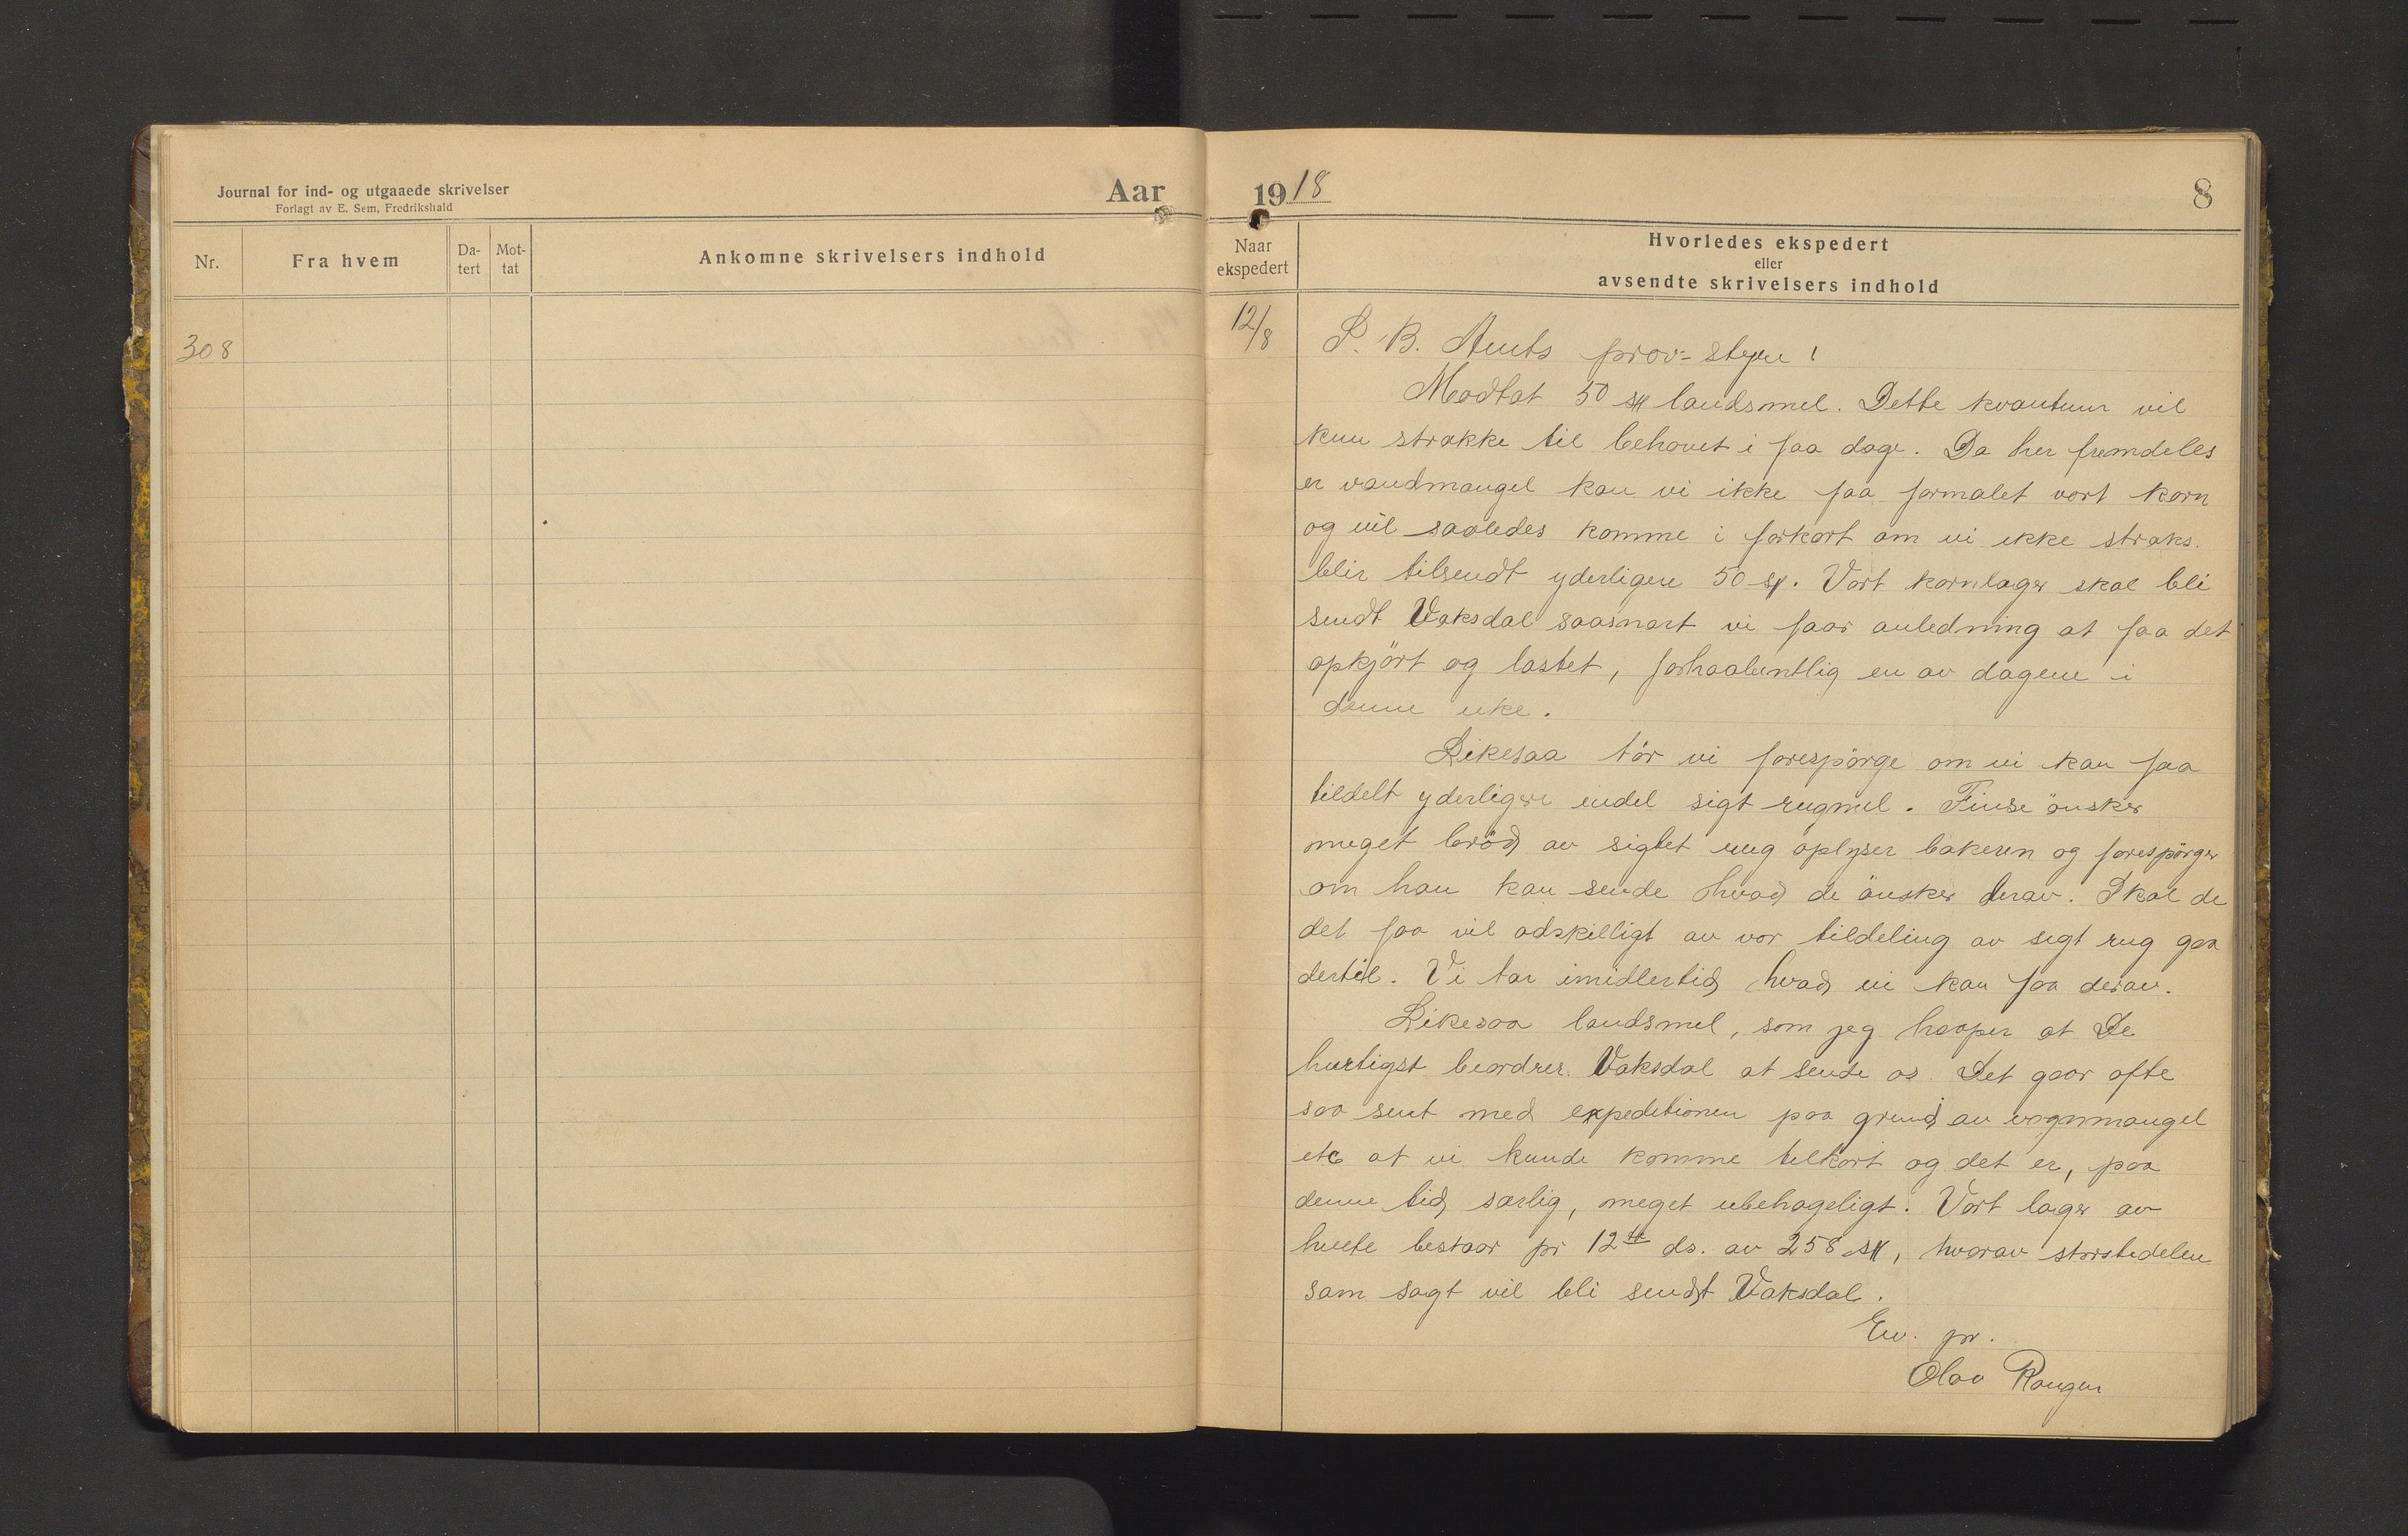 Journal for ind- og utgaaede skrivelser
Forlagt av E. Sem, Fredrikshald
Aar
1918
8
Nr.
Fra hvem
Da-
tert
Mot-
tat
Ankomne skrivelsers indhold
Naar
ekspedert
Hvorledes ekspedert
eller
avsendte skrivelsers indhold
308
12/8
S. B. Amts prov-styre!
Modtat 50 sk landsmel. Dette kvantum vil
kun strække til behovet i faa dage. Da her fremdeles
er vandmangel kan vi ikke faa formalet vort korn
og vil saaledes komme i forkort om vi ikke straks
blir tilsendt yderligere 50 sk. Vort kornlager skal bli
sendt Vaksdal saasnart vi faar anledning at faa det
opkjört og lastet, forhaabentlig en av dagene i
denne uke.
Likesaa tör vi forespörge om vi kan faa
tildelt yderligere endel sigt rugmel. Finse önsker
meget bröd av sigtet rug oplyser bakeren og forespörger
om han kan sende hvad de önsker derav. Skal de
det faa vil adskilligt av vor tildeling av sigt rug gaa
dertil. Vi tar imidlertid hvad vi kan faa derav.
Likesaa landsmel, som jeg haaper at De
hurtigst beordrer Vaksdal at sende os. Det gaar ofte
saa sent med expeditionen paa grund av vognmangel
etc at vi kunde komme tilkort og det er, paa
denne tid særlig, meget ubehageligt. Vort lager av
hvete bestaar pr 12te ds. av 258 sk, hvorav störstedelen
som sagt vil bli sendt Vaksdal.
Erv. pr.
Olav Rongen